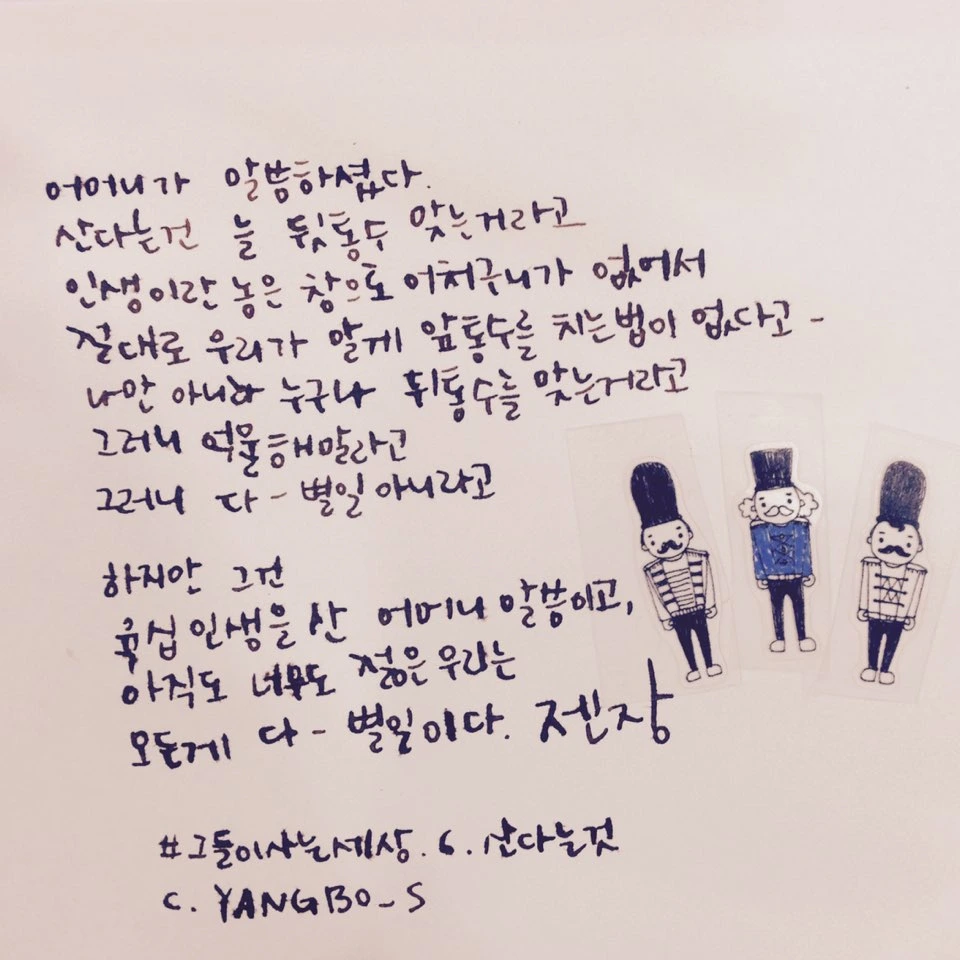 어머니가 말씀하셨다.
산다는건 늘 뒷통수 맞는거라고
인생이란 놈은 참으로 어처구니가 없어서
절대로 우리가 알게 앞통수를 치는법이 없다고 -
나만 아니라 누구나 뒤통수를 맞는거라고
그러니 억울해말라고
그러니 다 - 별일 아니라고
하지만 그건
육십 인생을 산 어머니 말씀이고,
아직도 너무도 젊은 우리는
모든게 다 - 별일이다. 젠장
#그들이사는세상. 6. 산다는것
c. YANGBO_S